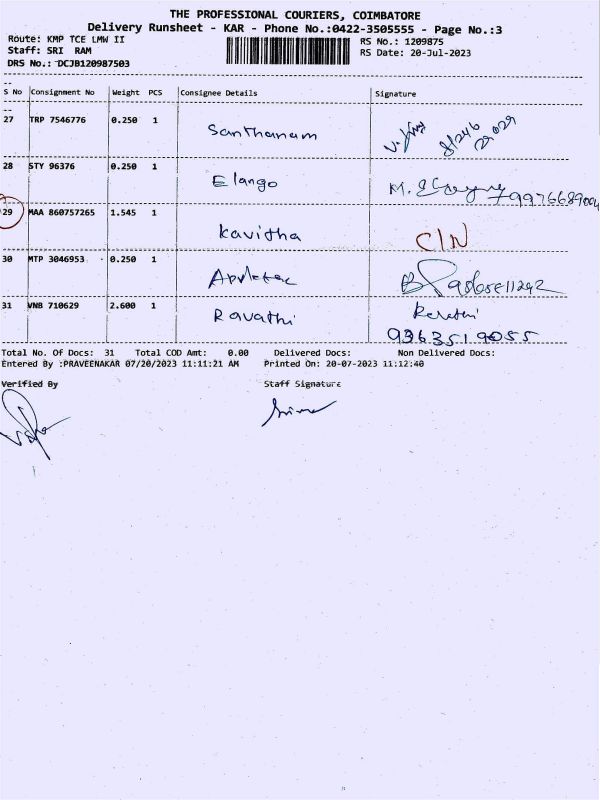 THE PROFESSIONAL COURIERS, COIMBATORE
Delivery Runsheet - KAR - Phone No.:0422-3505555 - Page No.:3
Route: KMP TCE LMW II
RS No.: 1209875
Staff: SRI RAM
RS Date: 20-Jul-2023
DRS No.: DCJB120987503
S No Consignment No Weight PCS Consignee Details Signature
27 TRP 7546776 0.250 1 Santhanam
28 STY 96376 0.250 1 Elango
29 MAA 860757265 1.545 1 Kavitha C/N
30 MTP 3046953 0.250 1
31 VNB 710629 2.600 1 Ravathi
9363519055
Total No. Of Docs: 31 Total COD Amt: 0.00 Delivered Docs: Non Delivered Docs:
Entered By :PRAVEENAKAR 07/20/2023 11:11:21 AM Printed On: 20-07-2023 11:12:40
Verified By Staff Signature